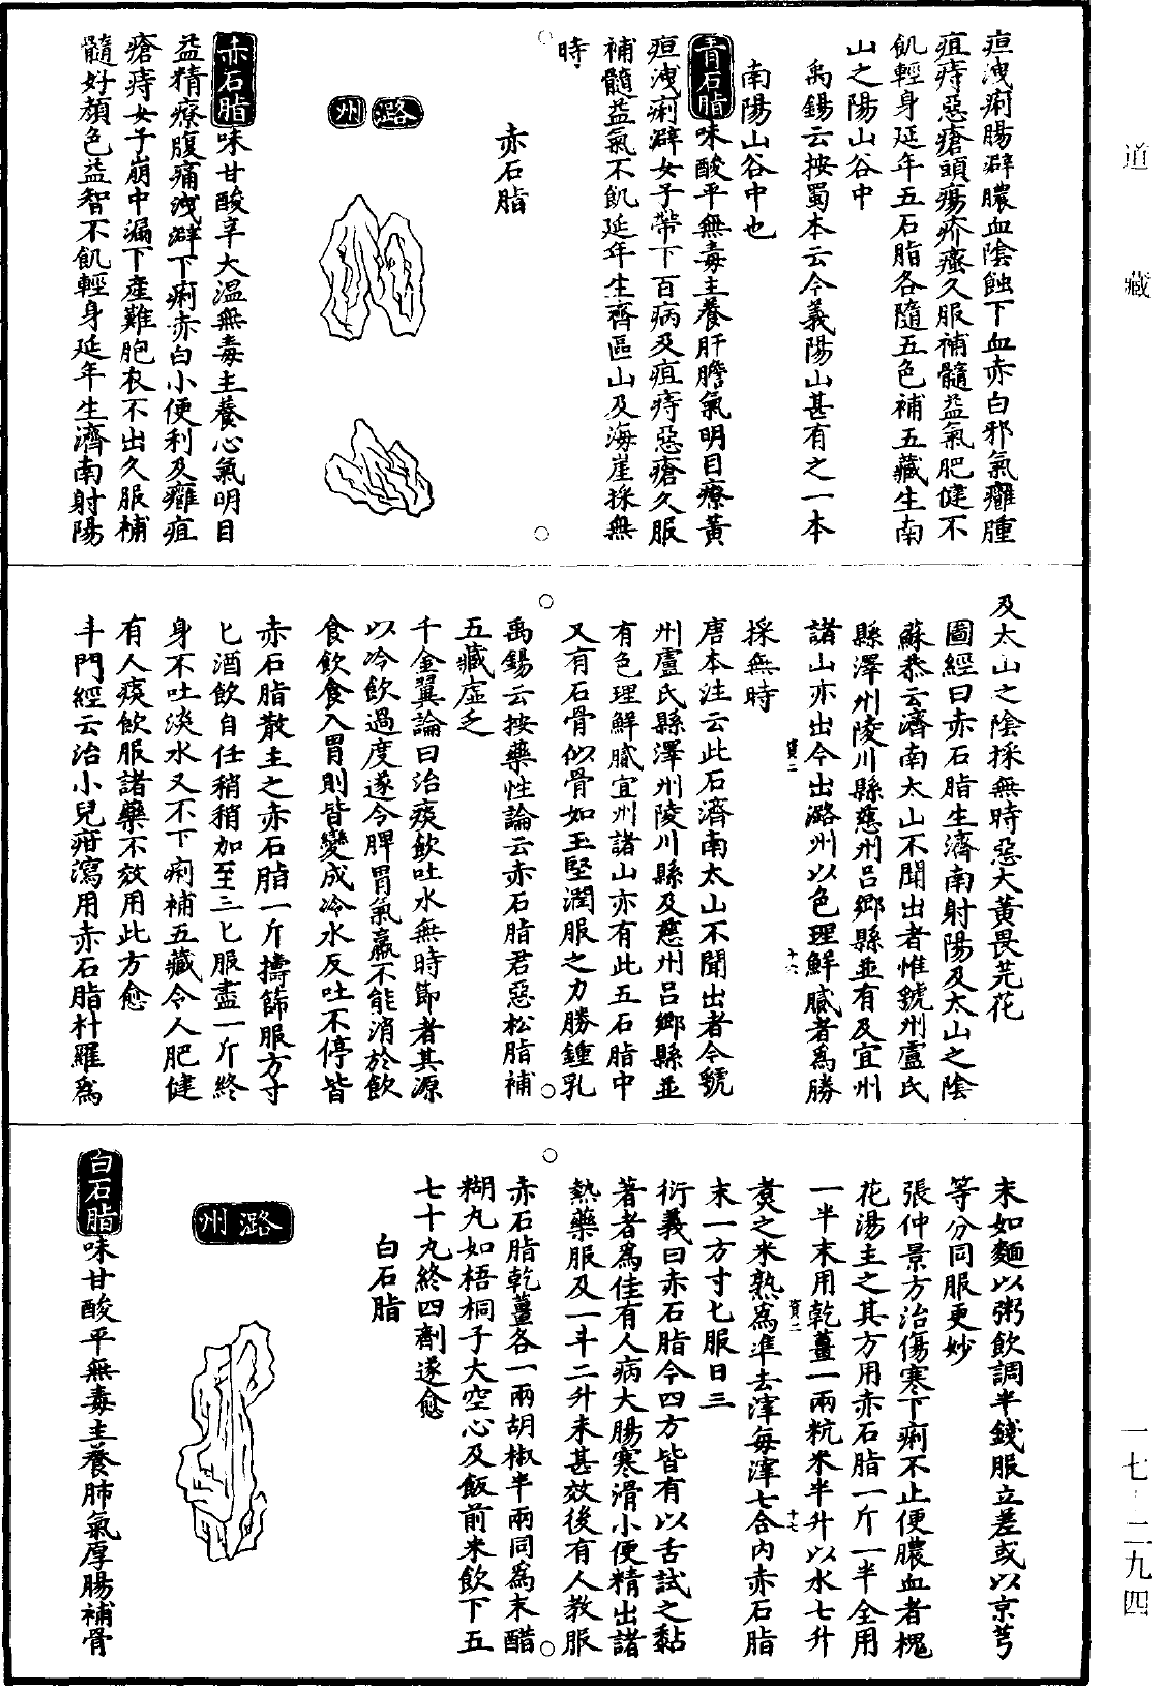 疸洩痢腸澼膿血陰蝕下血赤白邪氣癰腫
疽痔惡瘡頭瘍疥瘙久服補髓益氣肥健不
飢輕身延年五石脂各隨五色補五藏生南
山之陽山谷中
禹錫云按蜀本云今義陽山甚有之一本
南陽山谷中也
青石脂味酸平無毒主養肝膽氣明目療黃
疸洩痢澼女子帶下百病及疽痔惡瘡久服
補髓益氣不飢延年生齊區山及海崖採無
時
赤石脂
潞州
赤石脂味甘酸辛大溫無毒主養心氣明目
益精療腹痛洩澼下痢赤白小便利及癰疽
瘡痔女子崩中漏下產難胞衣不出久服補
髓好顏色益智不飢輕身延年生濟南射陽
及太山之陰採無時惡大黃畏芫花
圖經曰赤石脂生濟南射陽及太山之陰
蘇恭云濟南太山不聞出者惟虢州盧氏
縣澤州陵川縣慈州呂鄉縣並有及宜州
諸山亦出今出潞州以色理鮮膩者為勝
採無時
唐本注云此石濟南太山不聞出者今虢
州盧氏縣澤州陵川縣及慈州呂鄉縣並
有色理鮮膩宜州諸山亦有此五石脂中
又有石骨似骨如玉堅潤服之力勝鍾乳
禹錫云按藥性論云赤石脂君惡松脂補
五藏虛乏
千金翼論曰治痰飲吐水無時節者其源
以冷飲過度遂令脾胃氣羸不能消於飲
食飲食入胃則皆變成冷水反吐不停皆
赤石脂散主之赤石脂一斤擣篩服方寸
匕酒飲自任稍稍加至三匕服盡一斤終
身不吐淡水又不下痢補五藏令人肥健
有人痰飲服諸藥不效用此方愈
斗門經云治小兒疳瀉用赤石脂杵羅為
末如麵以粥飲調半錢服立差或以京芎
等分同服更妙
張仲景方治傷寒下痢不止便膿血者桃
花湯主之其方用赤石脂一斤一半全用
一半末用乾薑一兩粳米半升以水七升
煑之米熟為準去滓每滓七合內赤石脂
末一方寸匕服日三
衍義曰赤石脂今四方皆有以舌試之黏
著者為佳有人病大腸寒滑小便精出諸
熱藥服及一斗二升未甚效後有人教服
赤石脂乾薑各一兩胡椒半兩同為末醋
糊丸如梧桐子大空心及飯前米飲下五
七十丸終四劑遂愈
白石脂
潞州
白石脂味甘酸平無毒主養肺氣厚腸補骨
道藏
一七·二九四